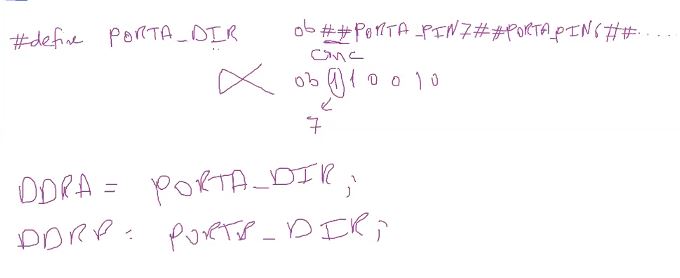 #define PORTA_DIR 0b##PORTA_PIN7##PORTA_PIN6##.....
conc
0b110010
7
DDRA = PORTA_DIR;
DDRB = PORTB_DIR;